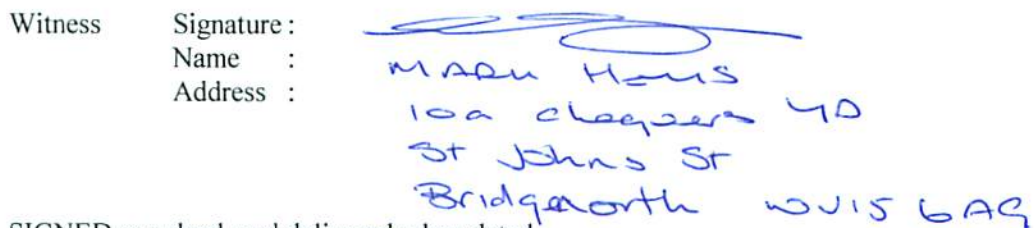 Witness Signature :
Name : MARK
Address : 10a chequers YD
St Johns St
Bridgnorth WV15 6AG
SIGNED